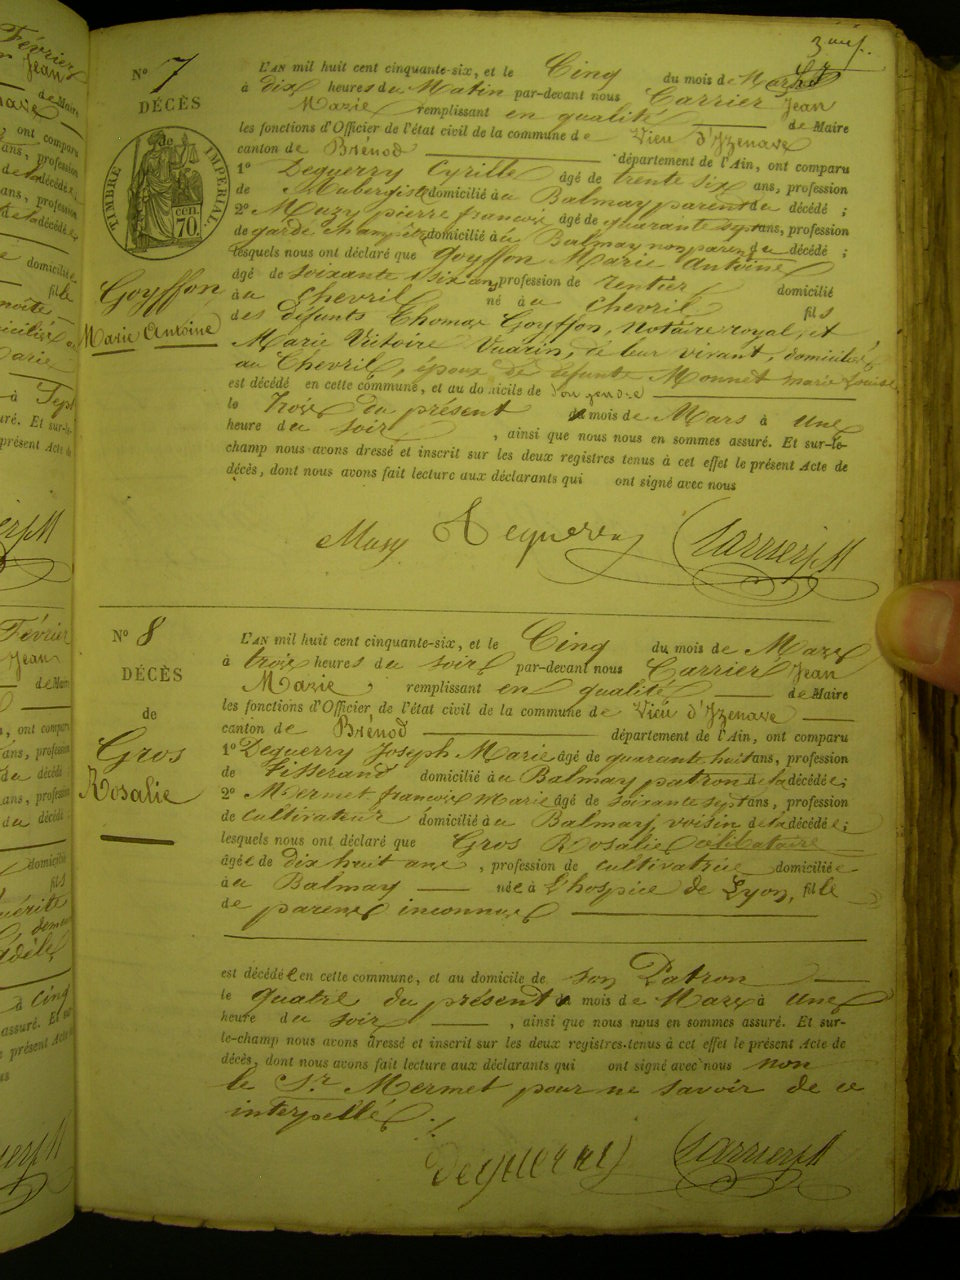 3 mars.
N° 7
DÉCÈS
de
TIMBRE IMPÉRIAL
cen. 70.
Goyffon
Marie Antoine
L'AN mil huit cent cinquante-six, et le Cinq du mois de Mars
à dix heures du Matin par-devant nous Carrier Jean
Marie remplissant en qualité de Maire
les fonctions d'Officier de l'état civil de la commune de Vieu d'Yzenave
canton de Brénod département de l'Ain, ont comparu
1° Deguerry Cyrille âgé de trente six ans, profession
de Aubergiste domicilié à Balmay parent du décédé ;
2° Muzy pierre francois âgé de quarante sept ans, profession
de garde champêtre domicilié à Balmay non parent du décédé ;
lesquels nous ont déclaré que Goyffon Marie Antoine
âgé de soixante six ans, profession de rentier domicilié
à au Chevril né à au Chevril fils
des défunts Thomas Goyffon, Notaire royal, et
Marie Victoire Vuarin, de leur vivant, domiciliés
au Chevril, époux de défunte Monnet Marie Louise
est décédé en cette commune, et au domicile de son gendre
le trois du présent mois de Mars à une
heure du soir, ainsi que nous nous en sommes assuré. Et sur-le-
champ nous avons dressé et inscrit sur les deux registres tenus à cet effet le présent Acte de
décès, dont nous avons fait lecture aux déclarants qui ont signé avec nous
Muzy Deguerry Carrier J M
N° 8
DÉCÈS
de
Gros
Rosalie
L'AN mil huit cent cinquante-six, et le Cinq du mois de Mars
à trois heures du soir par-devant nous Carrier Jean
Marie, remplissant en qualité de Maire
les fonctions d'Officier de l'état civil de la commune de Vieu d'Yzenave
canton de Brénod département de l'Ain, ont comparu
1° Deguerry Joseph Marie âgé de quarante huit ans, profession
de Tisserand domicilié à Balmay patron de la décédée ;
2° Mermet francois Marie âgé de soixante sept ans, profession
de Cultivateur domicilié à Balmay voisin de la décédée ;
lesquels nous ont déclaré que Gros Rosalie Célibataire
âgée de dix huit ans, profession de cultivatrice domiciliée
à Balmay née à l'hospice de Lyon, fille
de parens inconnus
est décédée en cette commune, et au domicile de son Patron
le quatre du présent mois de Mars à une
heure du soir, ainsi que nous nous en sommes assuré. Et sur-
le-champ nous avons dressé et inscrit sur les deux registres tenus à cet effet le présent Acte de
décès, dont nous avons fait lecture aux déclarants qui ont signé avec nous non
le Sr Mermet pour ne savoir de ce
interpellé
deguerry Carrier J M